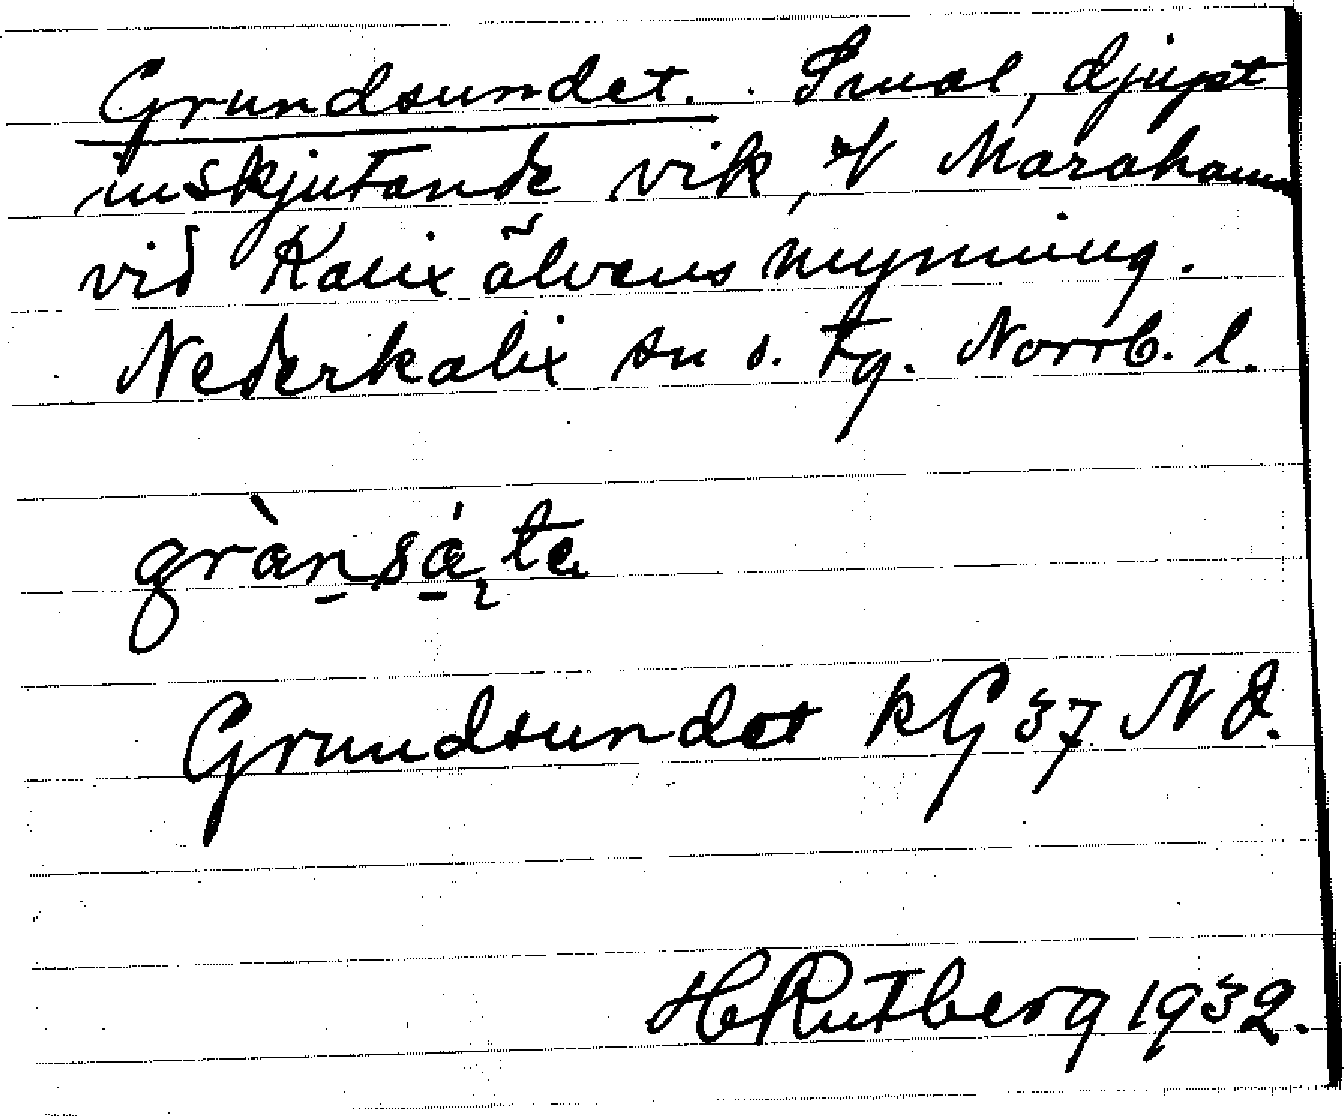 Grundsundet. Smal, djupt
inskjutande vik, V Marahamn
vid Kalix älvens mynning.
Nederkalix sn o. tg. Norrb. l.
grànsá̱te
Grundsundet kG 37 NO.
HRutberg 1932.